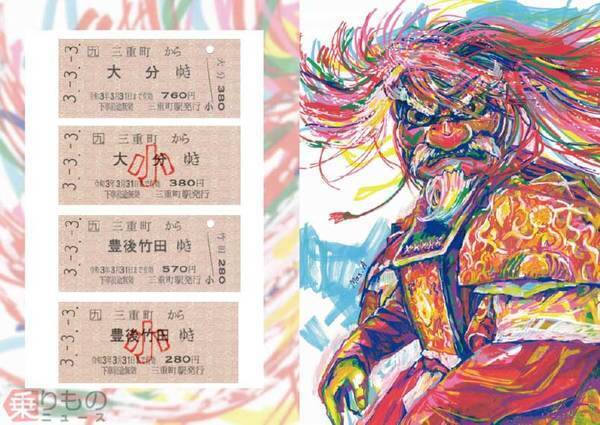 3.-3.-3.
九 三重町 から
大分 ゆき
令和3年3月31日まで有効 760円
下車前途無効 三重町駅発行 小
大分 380
3.-3.-3.
九 三重町 から
大分 ゆき
小
令和3年3月31日まで有効 380円
下車前途無効 三重町駅発行
3.-3.-3.
九 三重町 から
豊後竹田 ゆき
令和3年3月31日まで有効 570円
下車前途無効 三重町駅発行 小
竹田 280
3.-3.-3.
九 三重町 から
豊後竹田 ゆき
小
令和3年3月31日まで有効 280円
下車前途無効 三重町駅発行
乗りもの
ニュース